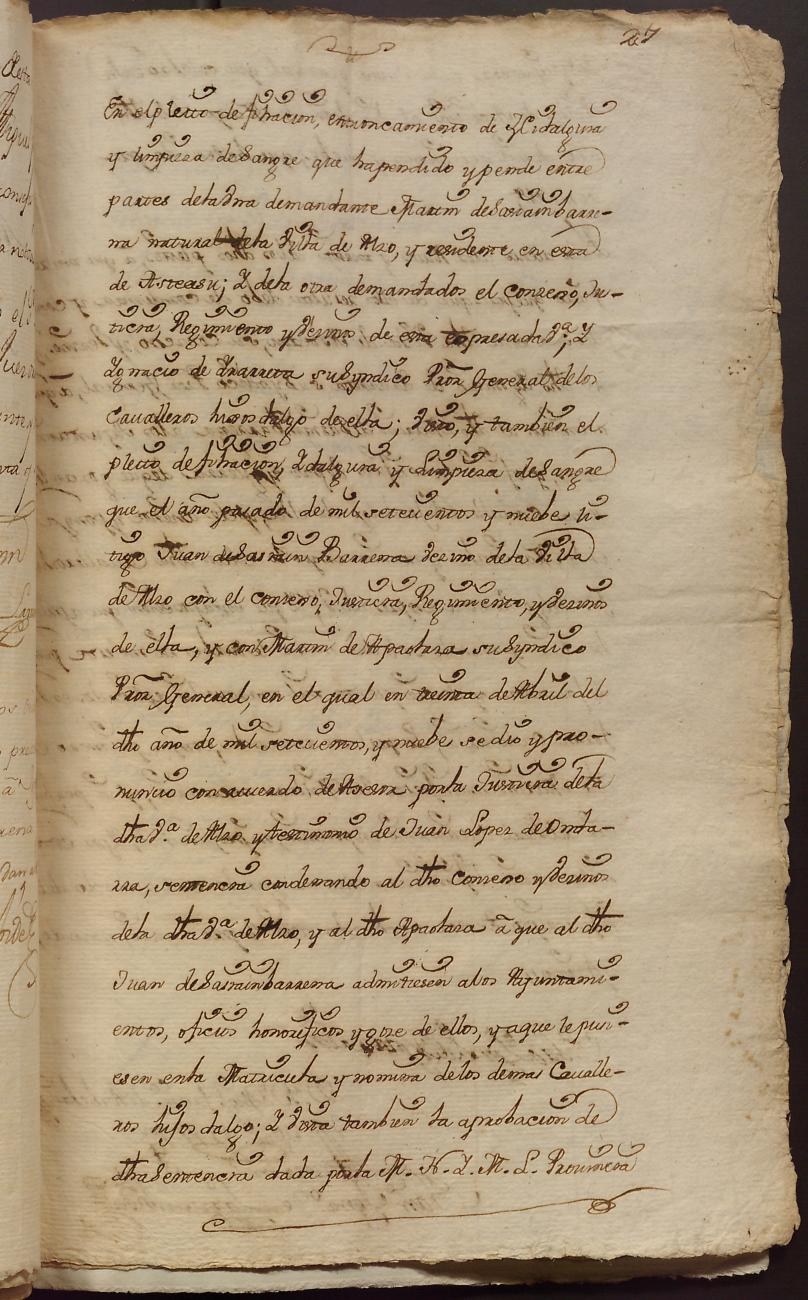 27
En el pleito de filiacion, entroncamiento de Ydalguia
y limpieza de Sangre que ha pendido y pende entre
partes de la vna demandante Martin de Sasiambarre-
na natural de la Villa de Alzo, y residente en esta
de Asteasu; Y de la otra demandados el conzejo, Jus-
ticia, Regimiento y Vezinos de esta expresada V.ª, Y
Ygnacio de Yrarreta su Syndico Pror General de los
Cavalleros hijos dalgo de ella; Visto, y tambien el
pleito de filiacion, Ydalguia, y Limpieza de Sangre
que el año pasado de mil setecientos y nuebe li-
tigo Juan de Sasiain Barrena Vezino de la Villa
de Alzo con el conzejo, Justicia, Regimiento, y Vezinos
de ella, y con Martin de Apaolaza su Syndico
Pror General, en el qual en treinta de Abril del
dho año de mil setecientos, y nuebe se dio y pro-
nuncio con acuerdo de Asesor por la Justicia de la
dha V.ª de Alzo y testimonio de Juan Lopez de Onda-
rra, sentencia condenando al dho conzejo y Vezinos
de la dha V.ª de Alzo, y al dho Apaolaza â que al dho
Juan de Sasiainbarrena admitiesen a los Ayuntami-
entos, oficios honorificos y goze de ellos, y a que le pusi-
esen en la Matricula y nomina de los demas Cavalle-
ros hijos dalgo; Y vista tambien la aprobacion de
dha Sentencia dada por la M. N. Y. M. L. Provincia